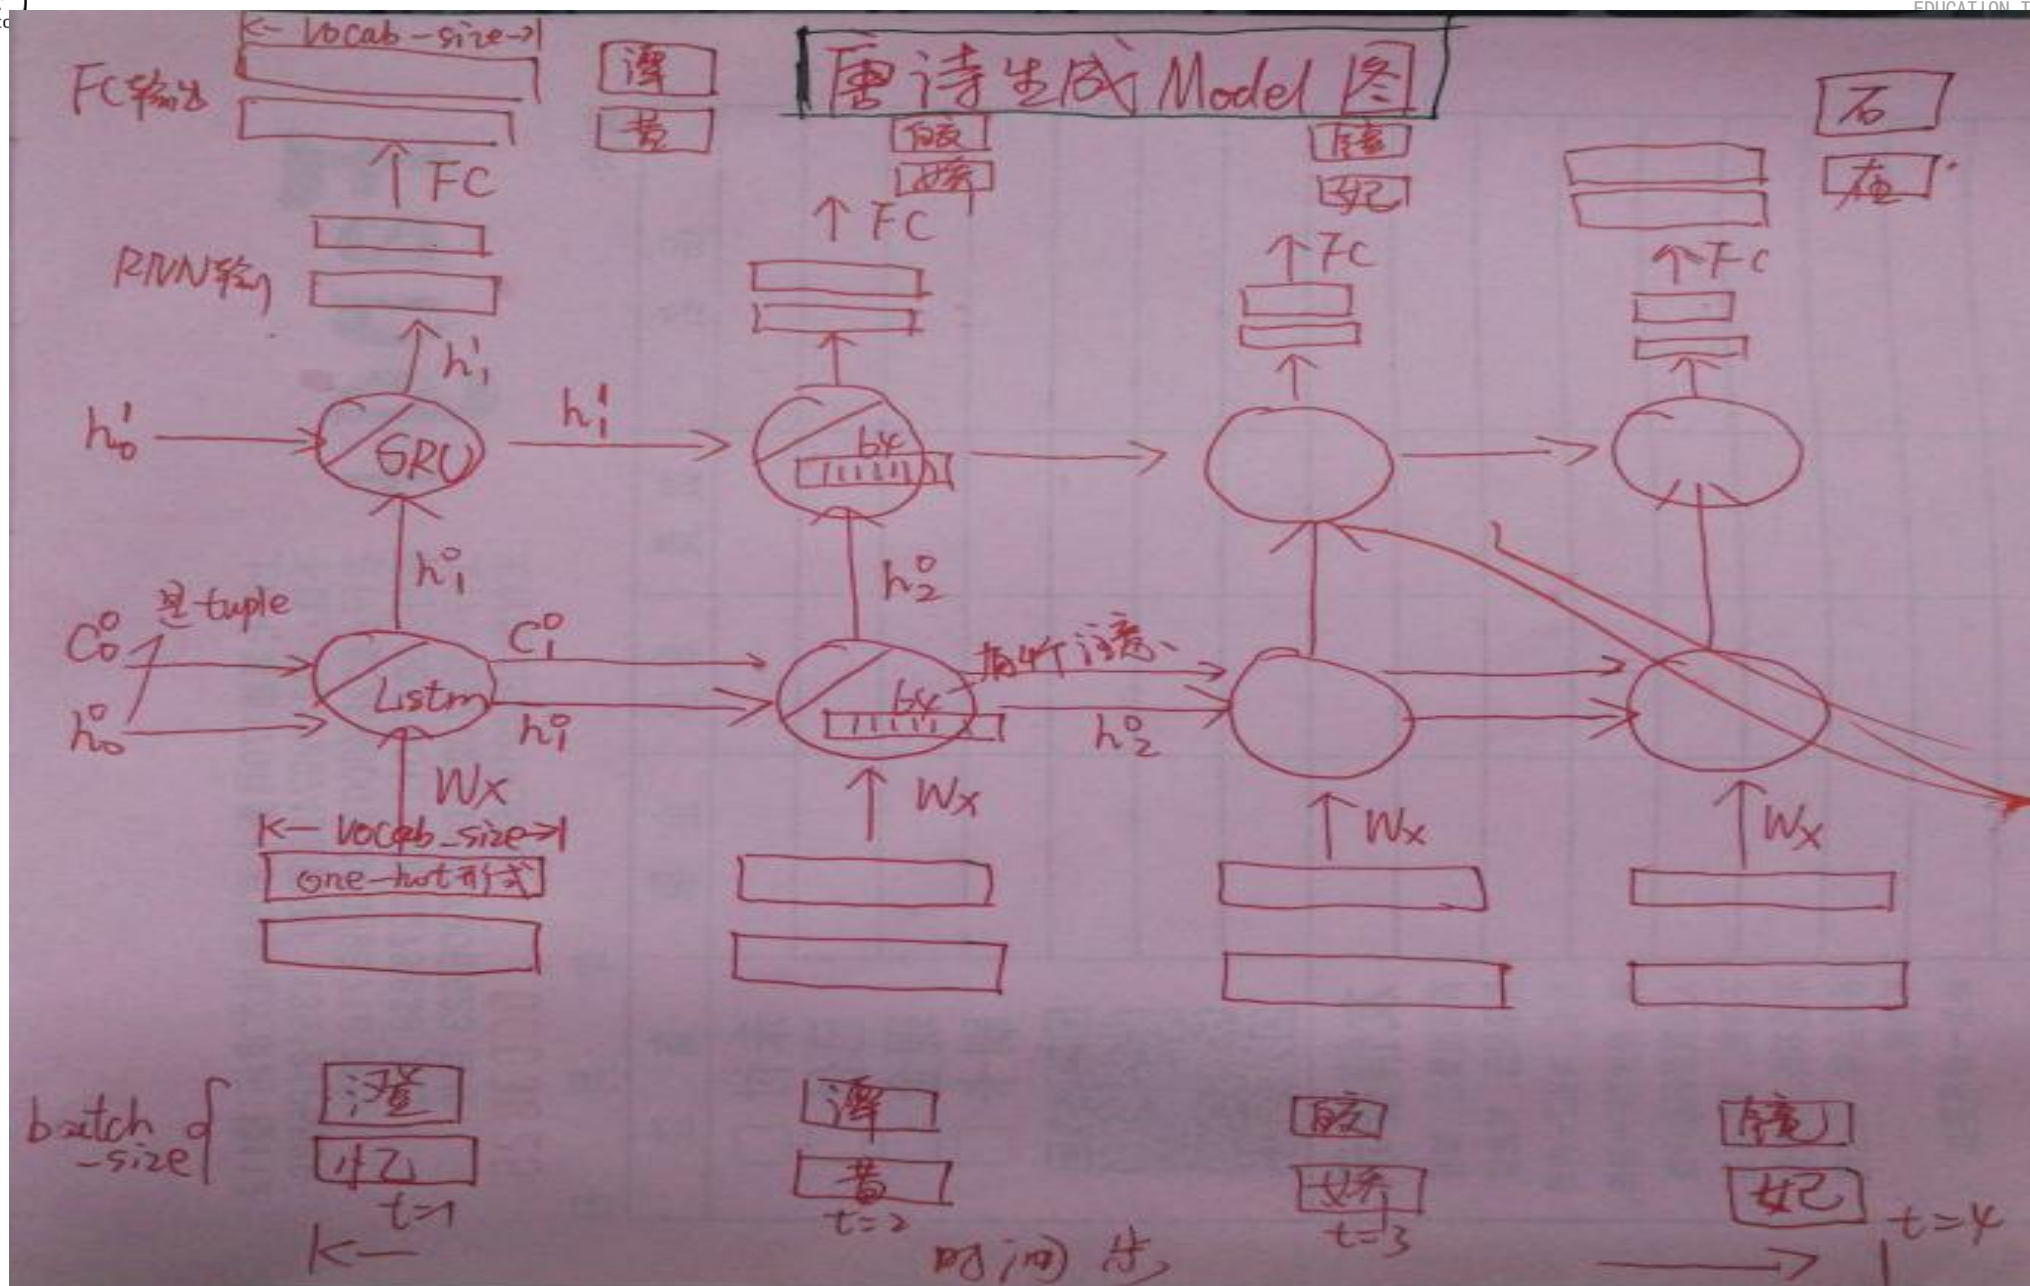 EDUCATION T
|← vocab-size→|
唐诗生成Model图
FC输出
潭
昔
皎
娇
镜
妃
石
在
↑ FC
↑ FC
↑FC
↑FC
RNN输
h₁¹
h₀¹
GRU
h₁¹
64
h₁⁰
h₂⁰
是tuple
C₀⁰
h₀⁰
Lstm
C₁⁰
h₁⁰
64
有4个注意、
h₂⁰
Wx
Wx
Wx
Wx
|← vocab_size→|
one-hot形式
batch
_size
澄
忆
t=1
潭
昔
t=2
皎
娇
t=3
镜
妃
t=4
|←
时间步
→|